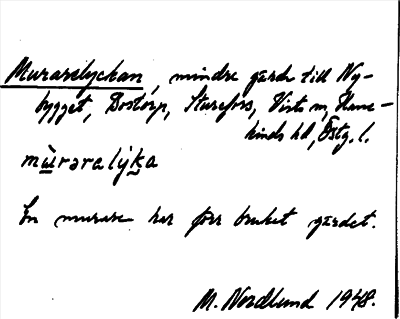 Murarelyckan, mindre gärde till Ny-
bygget, Bostorp, Sturefors, Vists sn, Hane-
kinds hd, Östg. l.
mu̇̀raralýka
En murare har förr brukat gärdet.
M. Nordlund 1948.